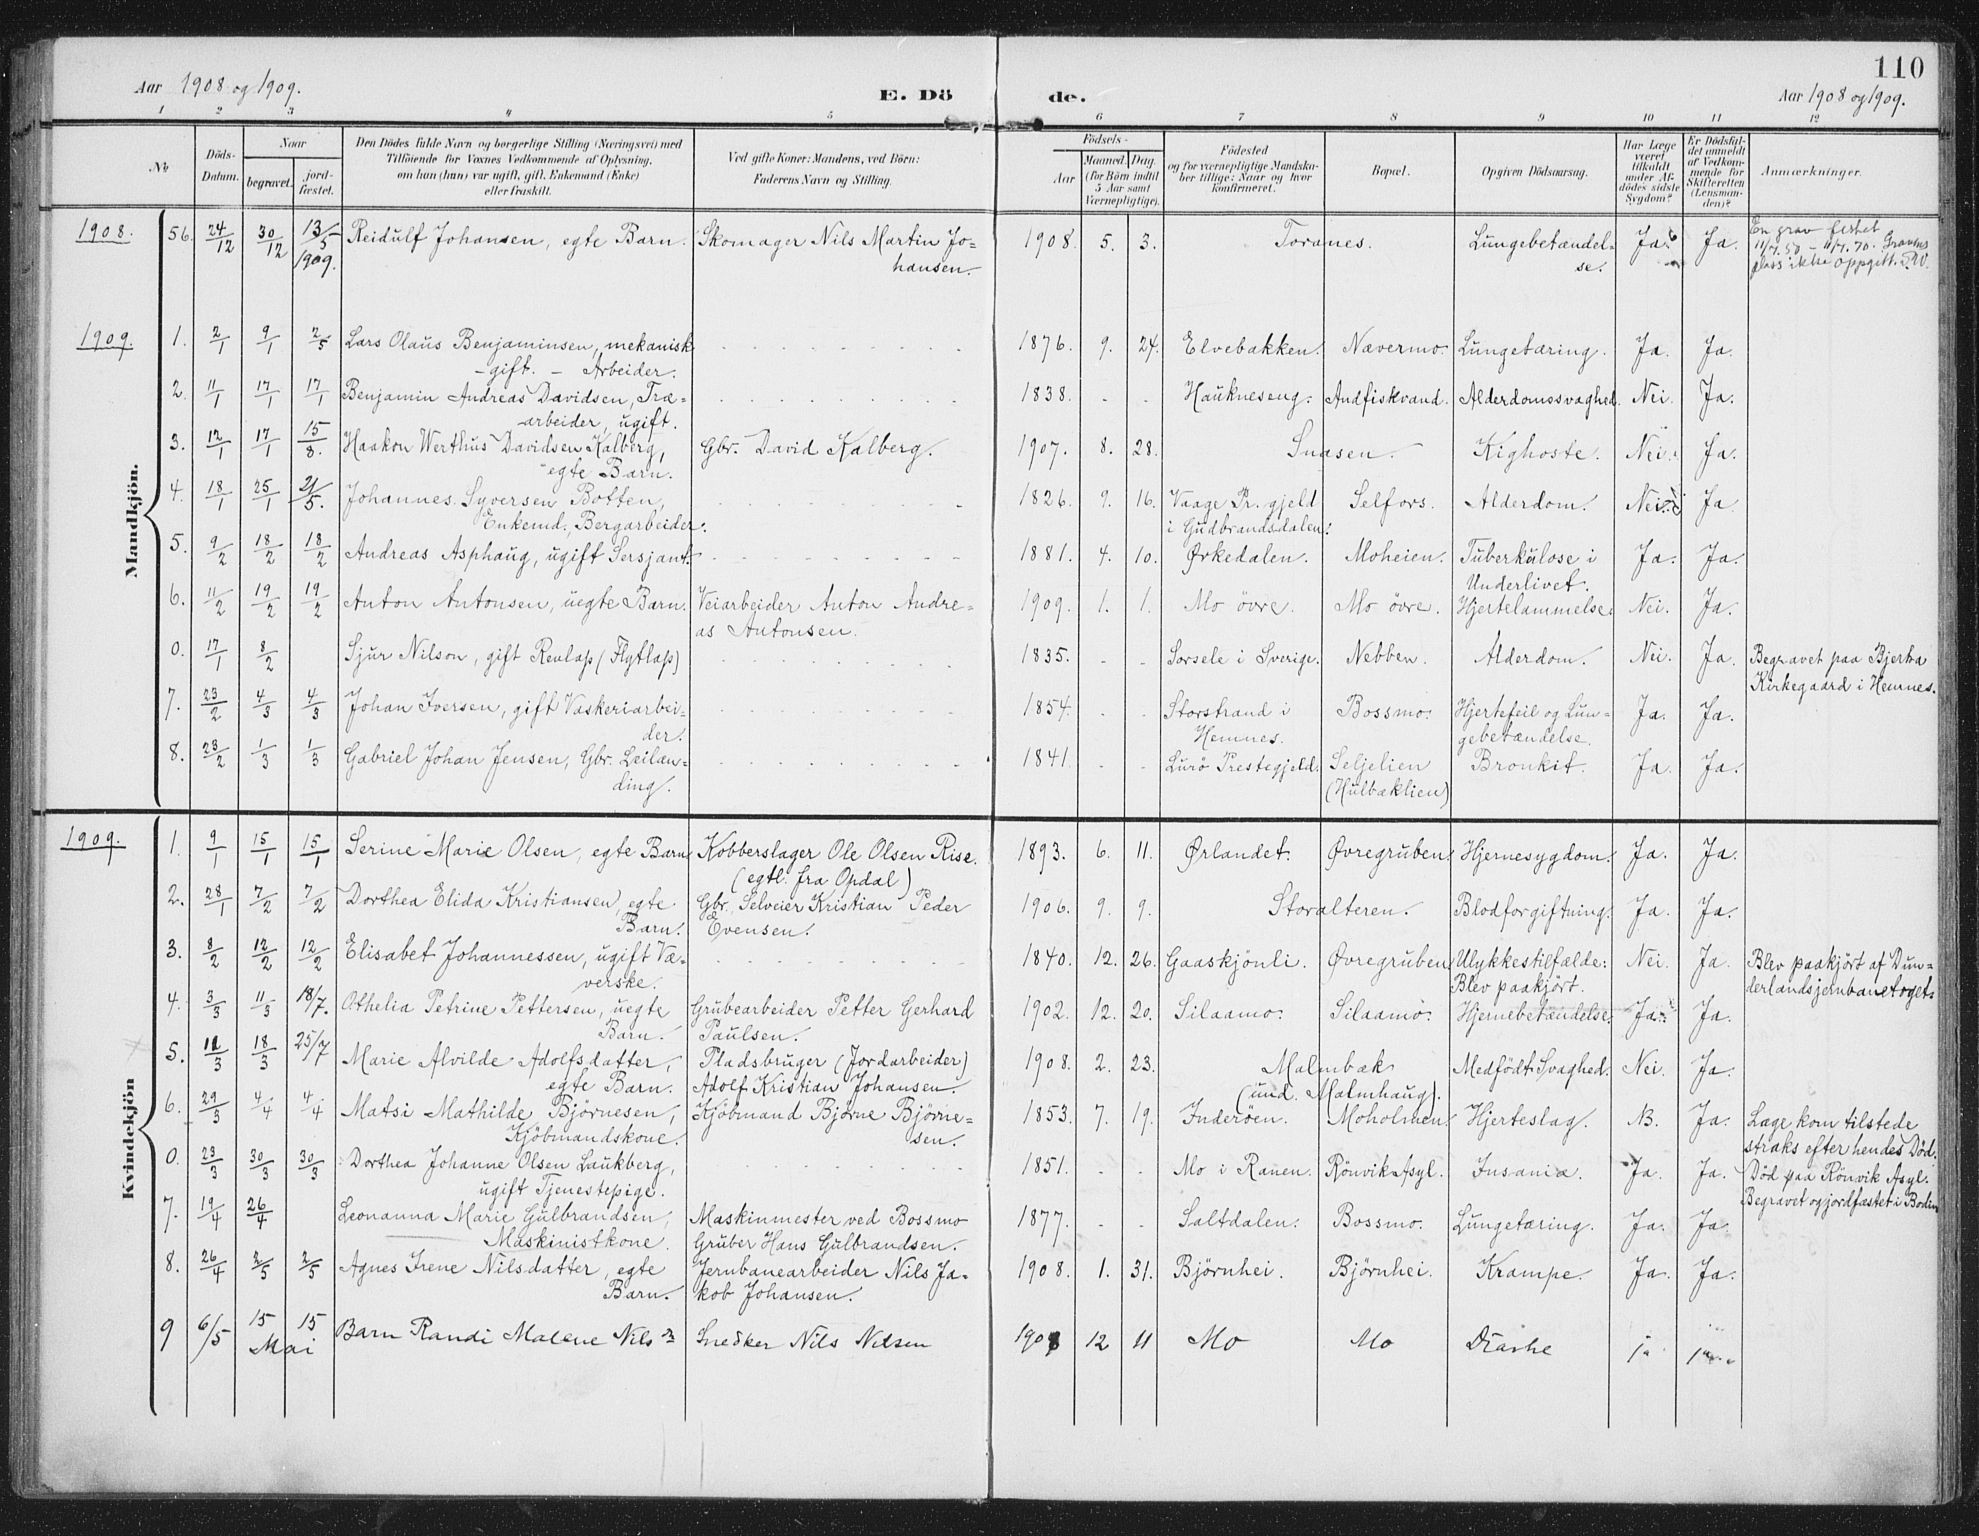 110
Aar 1908 og 1909. E. Dö de. Aar 1908 og 1909.
1 2 3 4 5 6 7 8 9 10 11 12
Nr. Döds-Datum. Naar begravet. jordfæstet. Den Dödes fulde Navn og borgerlige Stilling (Næringsvei) med Tilföiende for Voxnes Vedkommende af Oplysning, om han (hun) var ugift, gift, Enkemand (Enke) eller fraskilt. Ved gifte Koner: Mandens, ved Börn: Faderens Navn og Stilling. Födsels- Aar Maaned. Dag. (for Börn indtil 5 Aar samt Værnepligtige). Födested og for værnepligtige Mandskaber tillige: Naar og hvor konfirmeret. Bopæl. Opgiven Dödsaarsag. Har Læge været tilkaldt under Afdödes sidste Sygdom? Er Dödsfaldet anmeldt af Vedkommende for Skifteretten (Lensmanden)? Anmærkninger.
Mandkjön.
1908. 56. 24/12 30/12 13/5 1909. Reidulf Johansen, egte Barn. Skomager Nils Martin Johansen. 1908. 5. 3. Toranes. Lungebetændelse. Ja. Ja. En grav festet 11/7.50 - 11/7.70. Gravens plass ikke oppgitt.
1909. 1. 2/1 9/1 2/5 Lars Olaus Benjaminsen, mekanisk - gift. - Arbeider. 1876. 9. 24. Elvebakken. Nævermo. Lungetæring. Ja. Ja.
2. 11/1 17/1 17/1 Benjamin Andreas Davidsen, Træarbeider, ugift. 1838. - - Haukneseng. Andfiskvand. Alderdomssvaghed. Nei. Ja.
3. 12/1 17/1 15/8. Haakon Werthus Davidsen Kalberg, egte Barn. Gbr. David Kalberg. 1907. 8. 28. Snasen. Kighoste. Nei. Ja.
4. 18/1 25/1 21/5. Johannes Syversen Botten, Enkemd., Bergarbeider. 1826. 9. 16. Vaage Pr.gjeld i Gudbrandsdalen. Selfors. Alderdom. Nei. Ja
5. 9/2 18/2 18/2 Andreas Asphaug, ugift Sersjant. 1881. 4. 10. Ørkedalen. Moheien. Tuberkulose i Underlivet. Ja. Ja.
6. 11/2 19/2 19/2 Anton Antonsen, uegte Barn. Veiarbeider Anton Andreas Antonsen. 1909. 1. 1. Mo övre. Mo övre. Hjertelammelse. Nei. Ja.
0. 17/1 8/2 Sjur Nilson, gift Renlap (Flytlap) 1835. - - Sorsele i Sverige. Nebben. Alderdom. Nei. Ja. Begravet paa Bjerka Kirkegaard i Hemnes.
7. 23/2 4/3 4/3 Johan Iversen, gift Vaskeriarbeider. 1854. - - Storstrand i Hemnes. Bossmo. Hjertefeil og Lungebetændelse. Ja. Ja.
8. 23/2 1/3 1/3 Gabriel Johan Jensen, Gbr. Leilænding. 1841. - - Lurö Prestegjeld. Seljelien (Hulbæklien) Bronkit. Ja. Ja.
Kvindekjön
1909. 1. 9/1 15/1 15/1 Serine Marie Olsen, egte Barn. Kobberslager Ole Olsen Rise. (egtl. fra Opdal) 1893. 6. 11. Ørlandet. Øvregruben. Hjernesygdom. Ja. Ja.
2. 28/1 7/2 7/2 Dorthea Elida Kristiansen, egte Barn. Gbr. Selveier Kristian Peder Evensen. 1906. 9. 9. Storalteren. Blodforgiftning. Ja. Ja.
3. 8/2 12/2 12/2 Elisabet Johannessen, ugift Væverske. 1840. 12. 26. Gaaskjönli. Øvregruben. Ulykkestilfælde: Blev paakjört. Nei. Ja. Blev paakjört af Dunderlandsjernbanetoget.
4. 3/3 11/3 18/7. Othelia Petrine Pettersen, uegte Barn. Grubearbeider Petter Gerhard Paulsen. 1902. 12. 20. Silaamo. Silaamo. Hjernebetændelse. Ja. Ja.
5. 12/3 18/3 25/7 Marie Alvilde Adolfsdatter, egte Barn. Pladsbruger (Jordarbeider) Adolf Kristian Johansen. 1908. 2. 23. Malmbæk (und. Malmhaug). Medfödt Svaghed. Nei. Ja.
6. 29/3 4/4 4/4 Matsi Mathilde Björnesen, Kjöbmandskone. Kjöbmand Björne Björnesen. 1853. 7. 19. Inderöen. Moholmen. Hjerteslag. N. Ja. Læge kom tilstede straks efter hendes Död.
0. 23/3 30/3 30/3 Dorthea Johanne Olsen Laukberg, ugift Tjenestepige. 1851. - - Mo i Ranen. Rönvik Asyl. Insania. Ja. Ja. Död paa Rönvik Asyl. Begravet og jordfæstet i Bodin
7. 19/4 26/4 Leonanna Marie Gulbrandsen, Maskinistkone. Maskinmester ved Bossmo Gruber Hans Gulbrandsen. 1877. - - Saltdalen. Bossmo. Lungetæring. Ja. Ja.
8. 26/4 2/5 2/5 Agnes Irene Nilsdatter, egte Barn. Jernbanearbeider Nils Jakob Johansen. 1908. 1. 31. Björnhei. Björnhei. Krampe. Ja. Ja.
9 6/5 15 15 Mai Barn Randi Malene Nilsn Snedker Nils Nilsen 1908 12 11 Mo Mo Diarhe ja ja